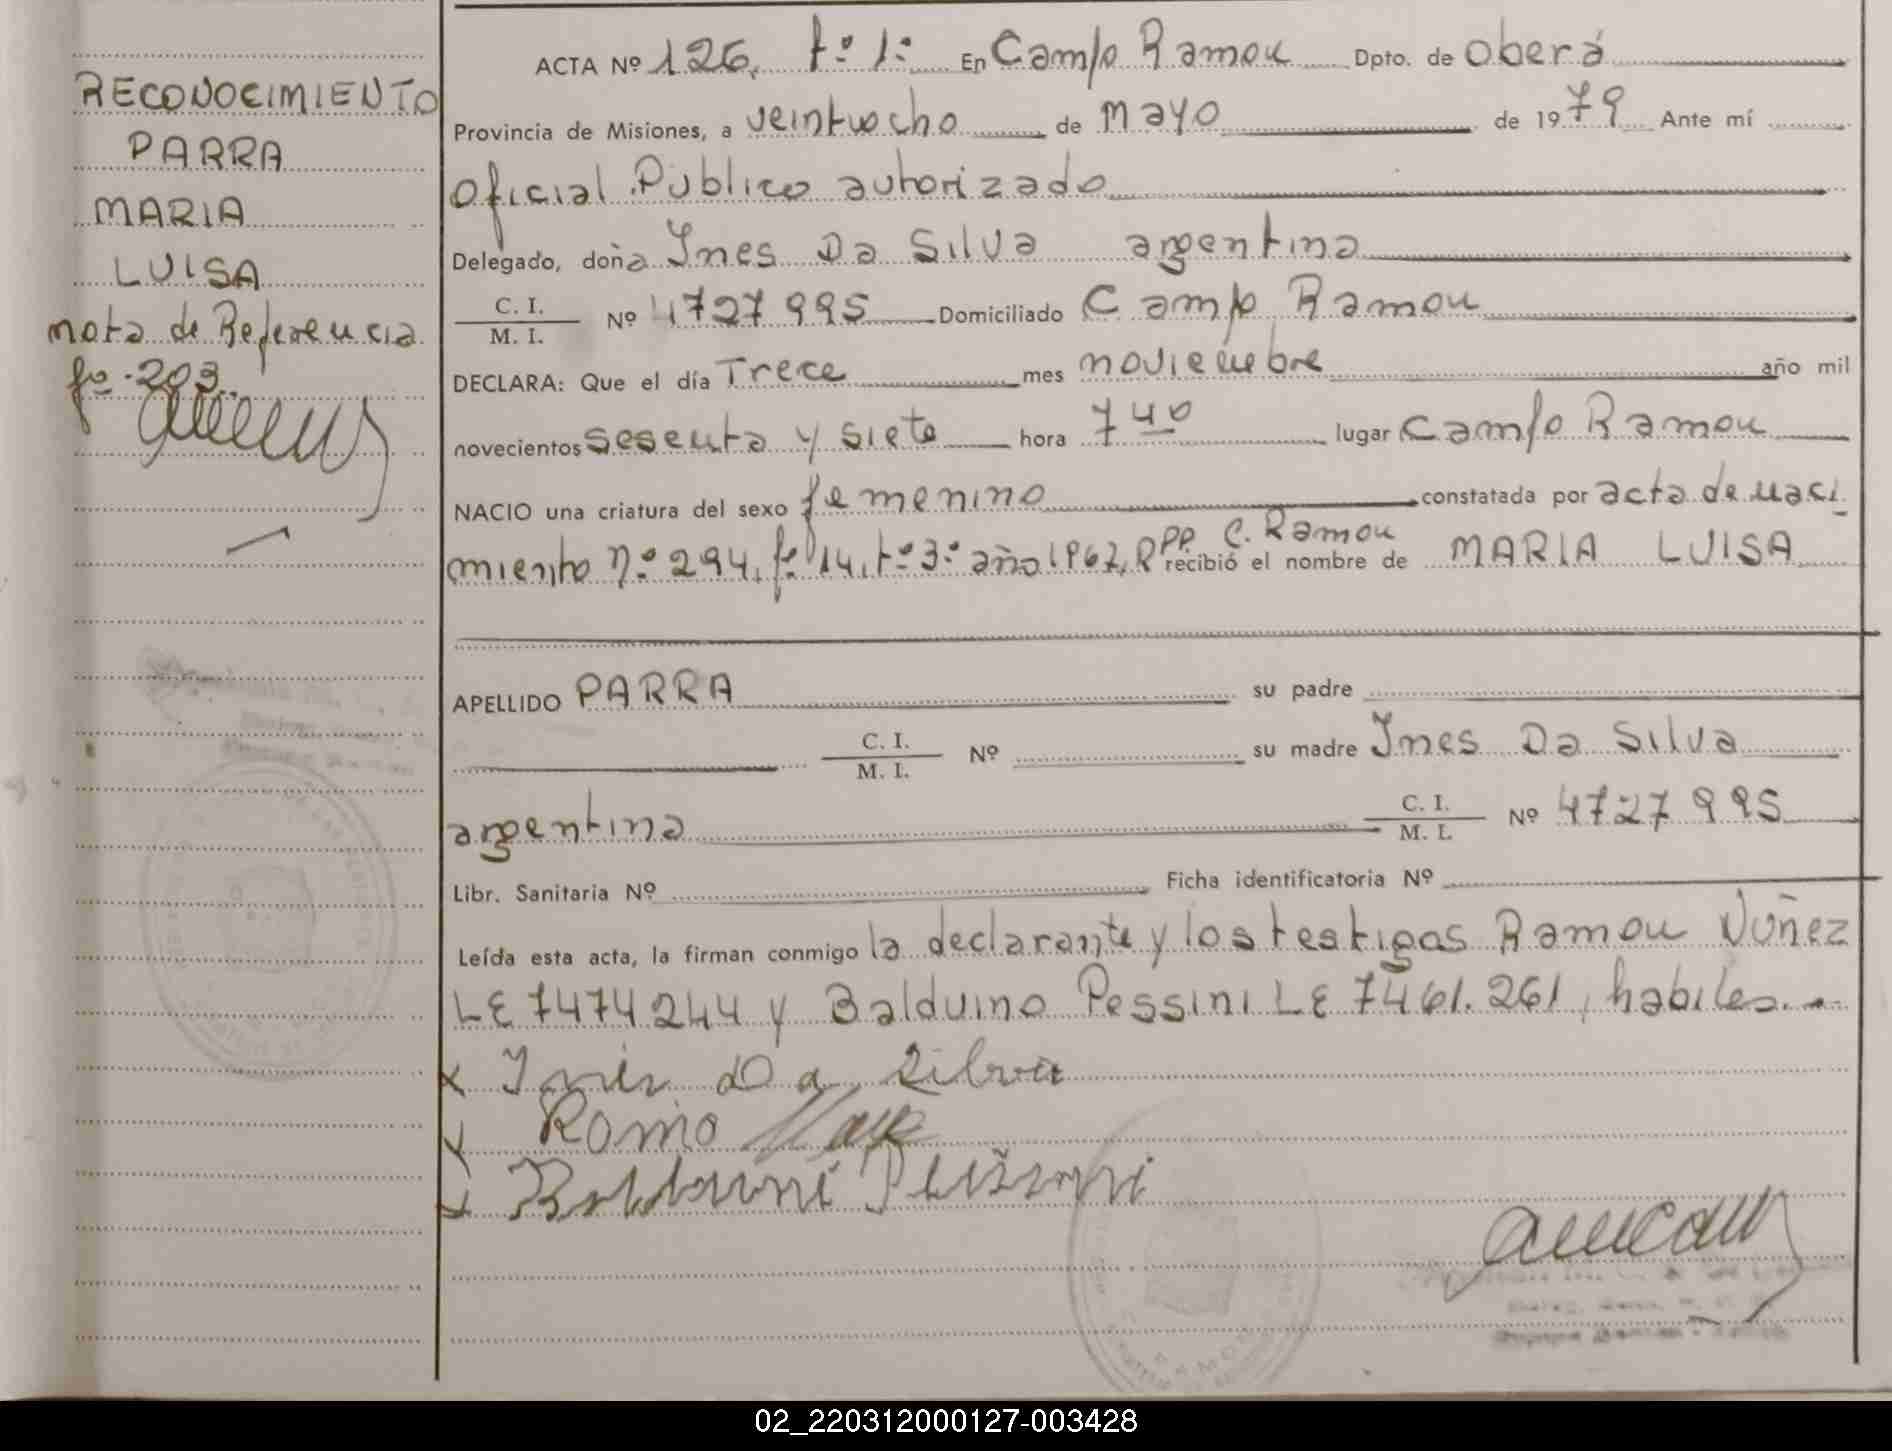 RECONOCIMIENTO
PARRA
MARIA
LUISA
nota de Referencia
fº 203
ACTA Nº 126. tº 1º En Campo Ramon Dpto. de Oberá
Provincia de Misiones, a veintiocho de mayo de 1979 Ante mí
Oficial Público autorizado
Delegado, doña Ines Da Silva argentina
C. I.
M. I.
Nº 4727995 Domiciliado Campo Ramon
DECLARA: Que el día Trece mes noviembre año mil
novecientos sesenta y siete hora 7 40 lugar Campo Ramon
NACIO una criatura del sexo femenino constatada por acta de naci
miento nº 294, fº 14, tº 3º año 1967, R PP. C. Ramon recibió el nombre de MARIA LUISA
APELLIDO PARRA su padre
C. I.
M. I.
Nº su madre Ines Da Silva
argentina C. I.
M. I.
Nº 4727995
Libr. Sanitaria Nº Ficha identificatoria Nº
Leída esta acta, la firman conmigo la declarante y los testigos Ramon Núñez
LE 7474244 y Balduino Pessini LE 7461.261, habiles.-
x Ines Da Silva
Romo
02_220312000127-003428